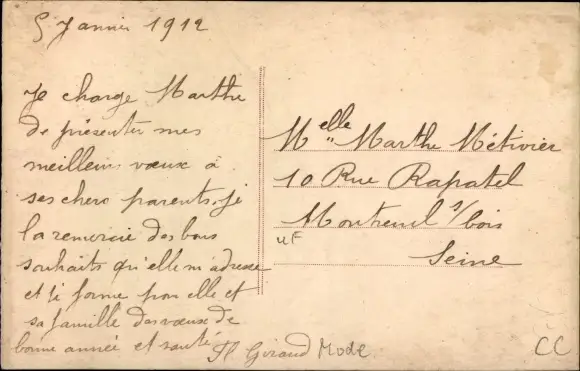 5 Janvier 1912
Je charge Marthe
de présenter mes
meilleurs voeux à
ses chers parents. je
la remercie des bons
souhaits qu'elle m'adresse
et je forme pour elle et
sa famille des voeux de
bonne année et santé
H Giraud Mode
Melle Marthe Métivier
10 Rue Rapatel
Montreuil s/bois
Seine
uF
CC